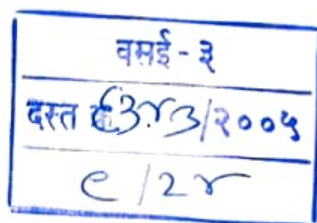 वसई - ३
दस्त क्र ८३४३/२००५
९/२४